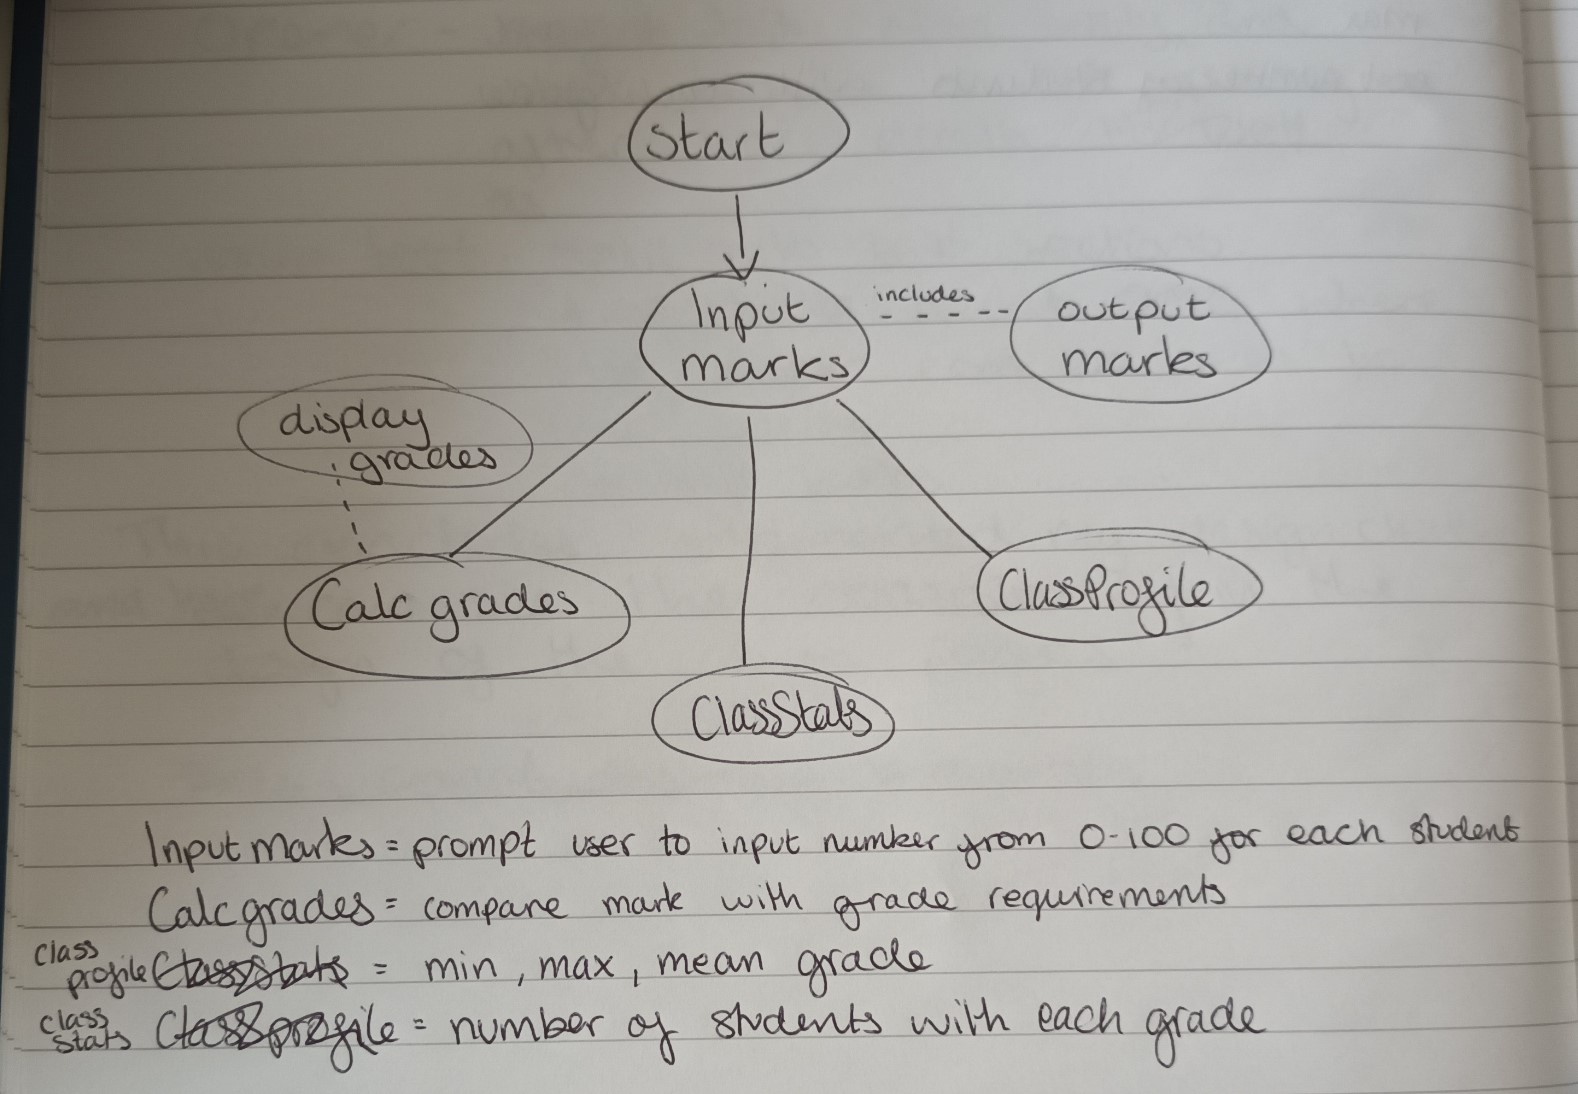 Start
Input
marks
includes
output
marks
display
grades
Calc grades
ClassProfile
ClassStats
Input marks = prompt user to input number from 0-100 for each student
Calc grades = compare mark with grade requirements
class
profile ClassStats = min, max, mean grade
class
stats ClassProfile = number of students with each grade